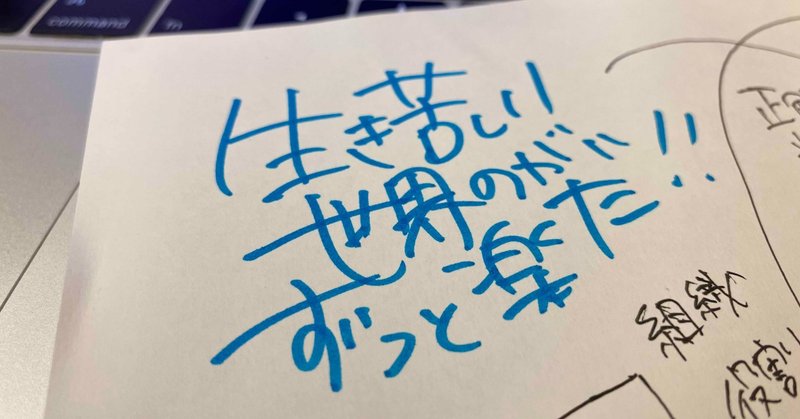 command
生き苦しい!
世界のが
ずっと楽だ!!